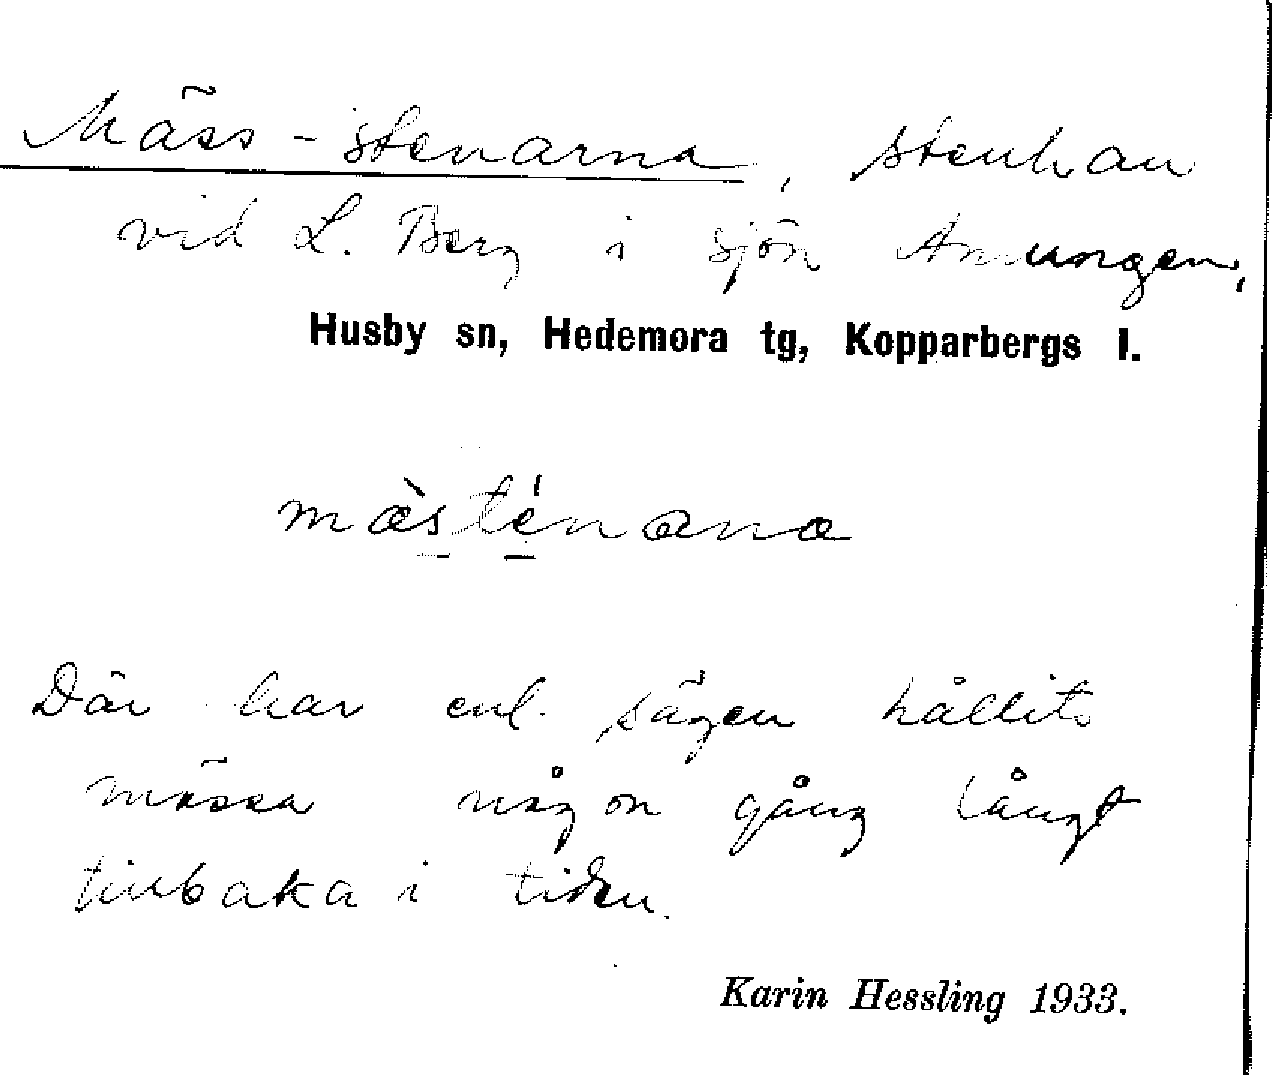 Mäss-stenarna, stenhau
vid L. Berg i sjön Amungen,
Husby sn, Hedemora tg, Kopparbergs l.
mæ̀sténana
Där har enl. sägen hållits
mässa någon gång långt
tillbaka i tiden.
Karin Hessling 1933.